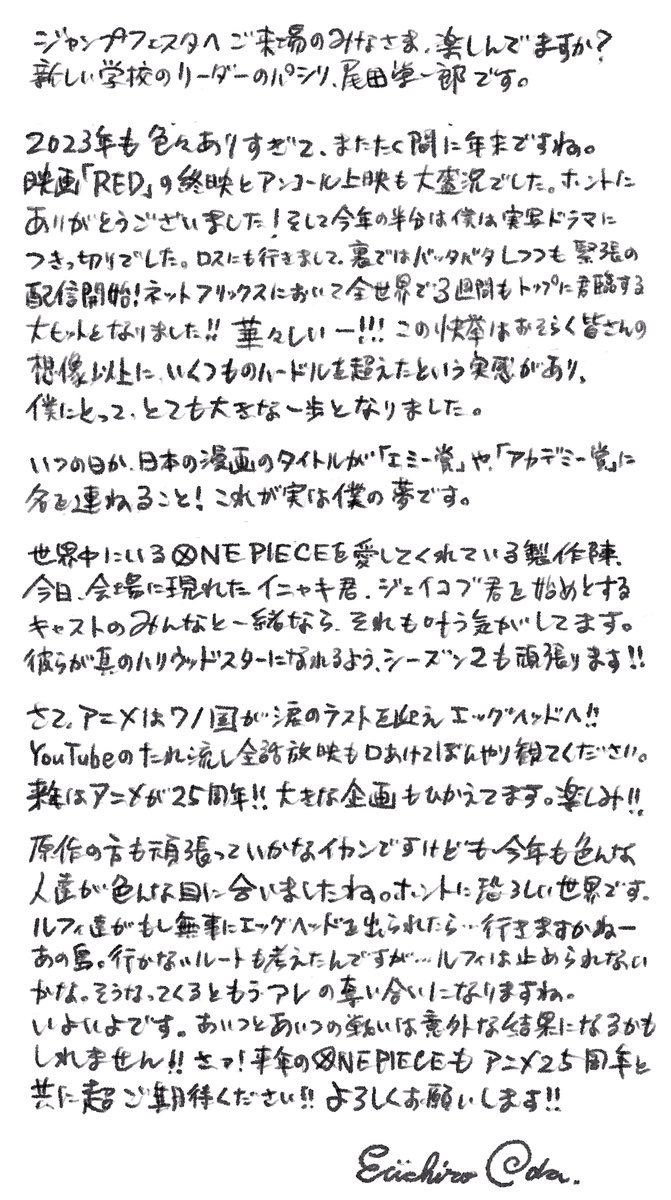 ジャンプフェスタへご来場のみなさま、楽しんでますか?
新しい学校のリーダーのパシリ、尾田栄一郎です。
2023年も色々ありすぎて、またたく間に年末ですね。
映画「RED」の終映とアンコール上映も大盛況でした。ホントに
ありがとうございました!そして今年の半分は僕は実写ドラマに
つきっ切りでした。ロスにも行きまして、裏ではバッタバタしつつも緊張の
配信開始!ネットフリックスにおいて全世界で3週間もトップに君臨する
大ヒットとなりました!!華々しいー!!!この快挙はおそらく皆さんの
想像以上に、いくつものハードルを超えたという実感があり、
僕にとって、とても大きな一歩となりました。
いつの日か、日本の漫画のタイトルが「エミー賞」や、「アカデミー賞」に
名を連ねること!これが実は僕の夢です。
世界中にいるONE PIECEを愛してくれている製作陣、
今日、会場に現れたイニャキ君、ジェイコブ君を始めとする
キャストのみんなと一緒なら、それも叶う気がしてます。
彼らが真のハリウッドスターになれるよう、シーズン2も頑張ります!!
さて、アニメはワノ国が涙のラストを迎えエッグヘッドへ!!
YouTubeのたれ流し全話放映も口あけてぼんやり観てください。
来年はアニメが25周年!!大きな企画もひかえてます。楽しみ!!
原作の方も頑張っていかなイカンですけども今年も色んな
人達が色んな目に合いましたね。ホントに恐ろしい世界です。
ルフィ達がもし無事にエッグヘッドを出られたら…行きますかねー
あの島。行かないルートも考えたんですが…ルフィは止められない
かな。そうなってくるともうアレの奪い合いになりますね。
いよいよです。あいつとあいつの戦いは意外な結果になるかも
しれません!!さァ!来年のONE PIECEもアニメ25周年と
共に超ご期待ください!!よろしくお願いします!!
Eiichiro Oda.